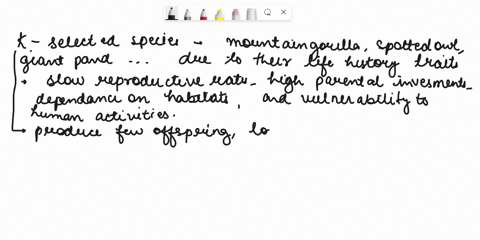 K - selected species - mountain gorilla, spotted owl,
giant pand ... due to their life history traits
• slow reproductive rate, high parental invesments,
dependance on habitats, and vulnerability to
human activities.
produce few offspring, lo